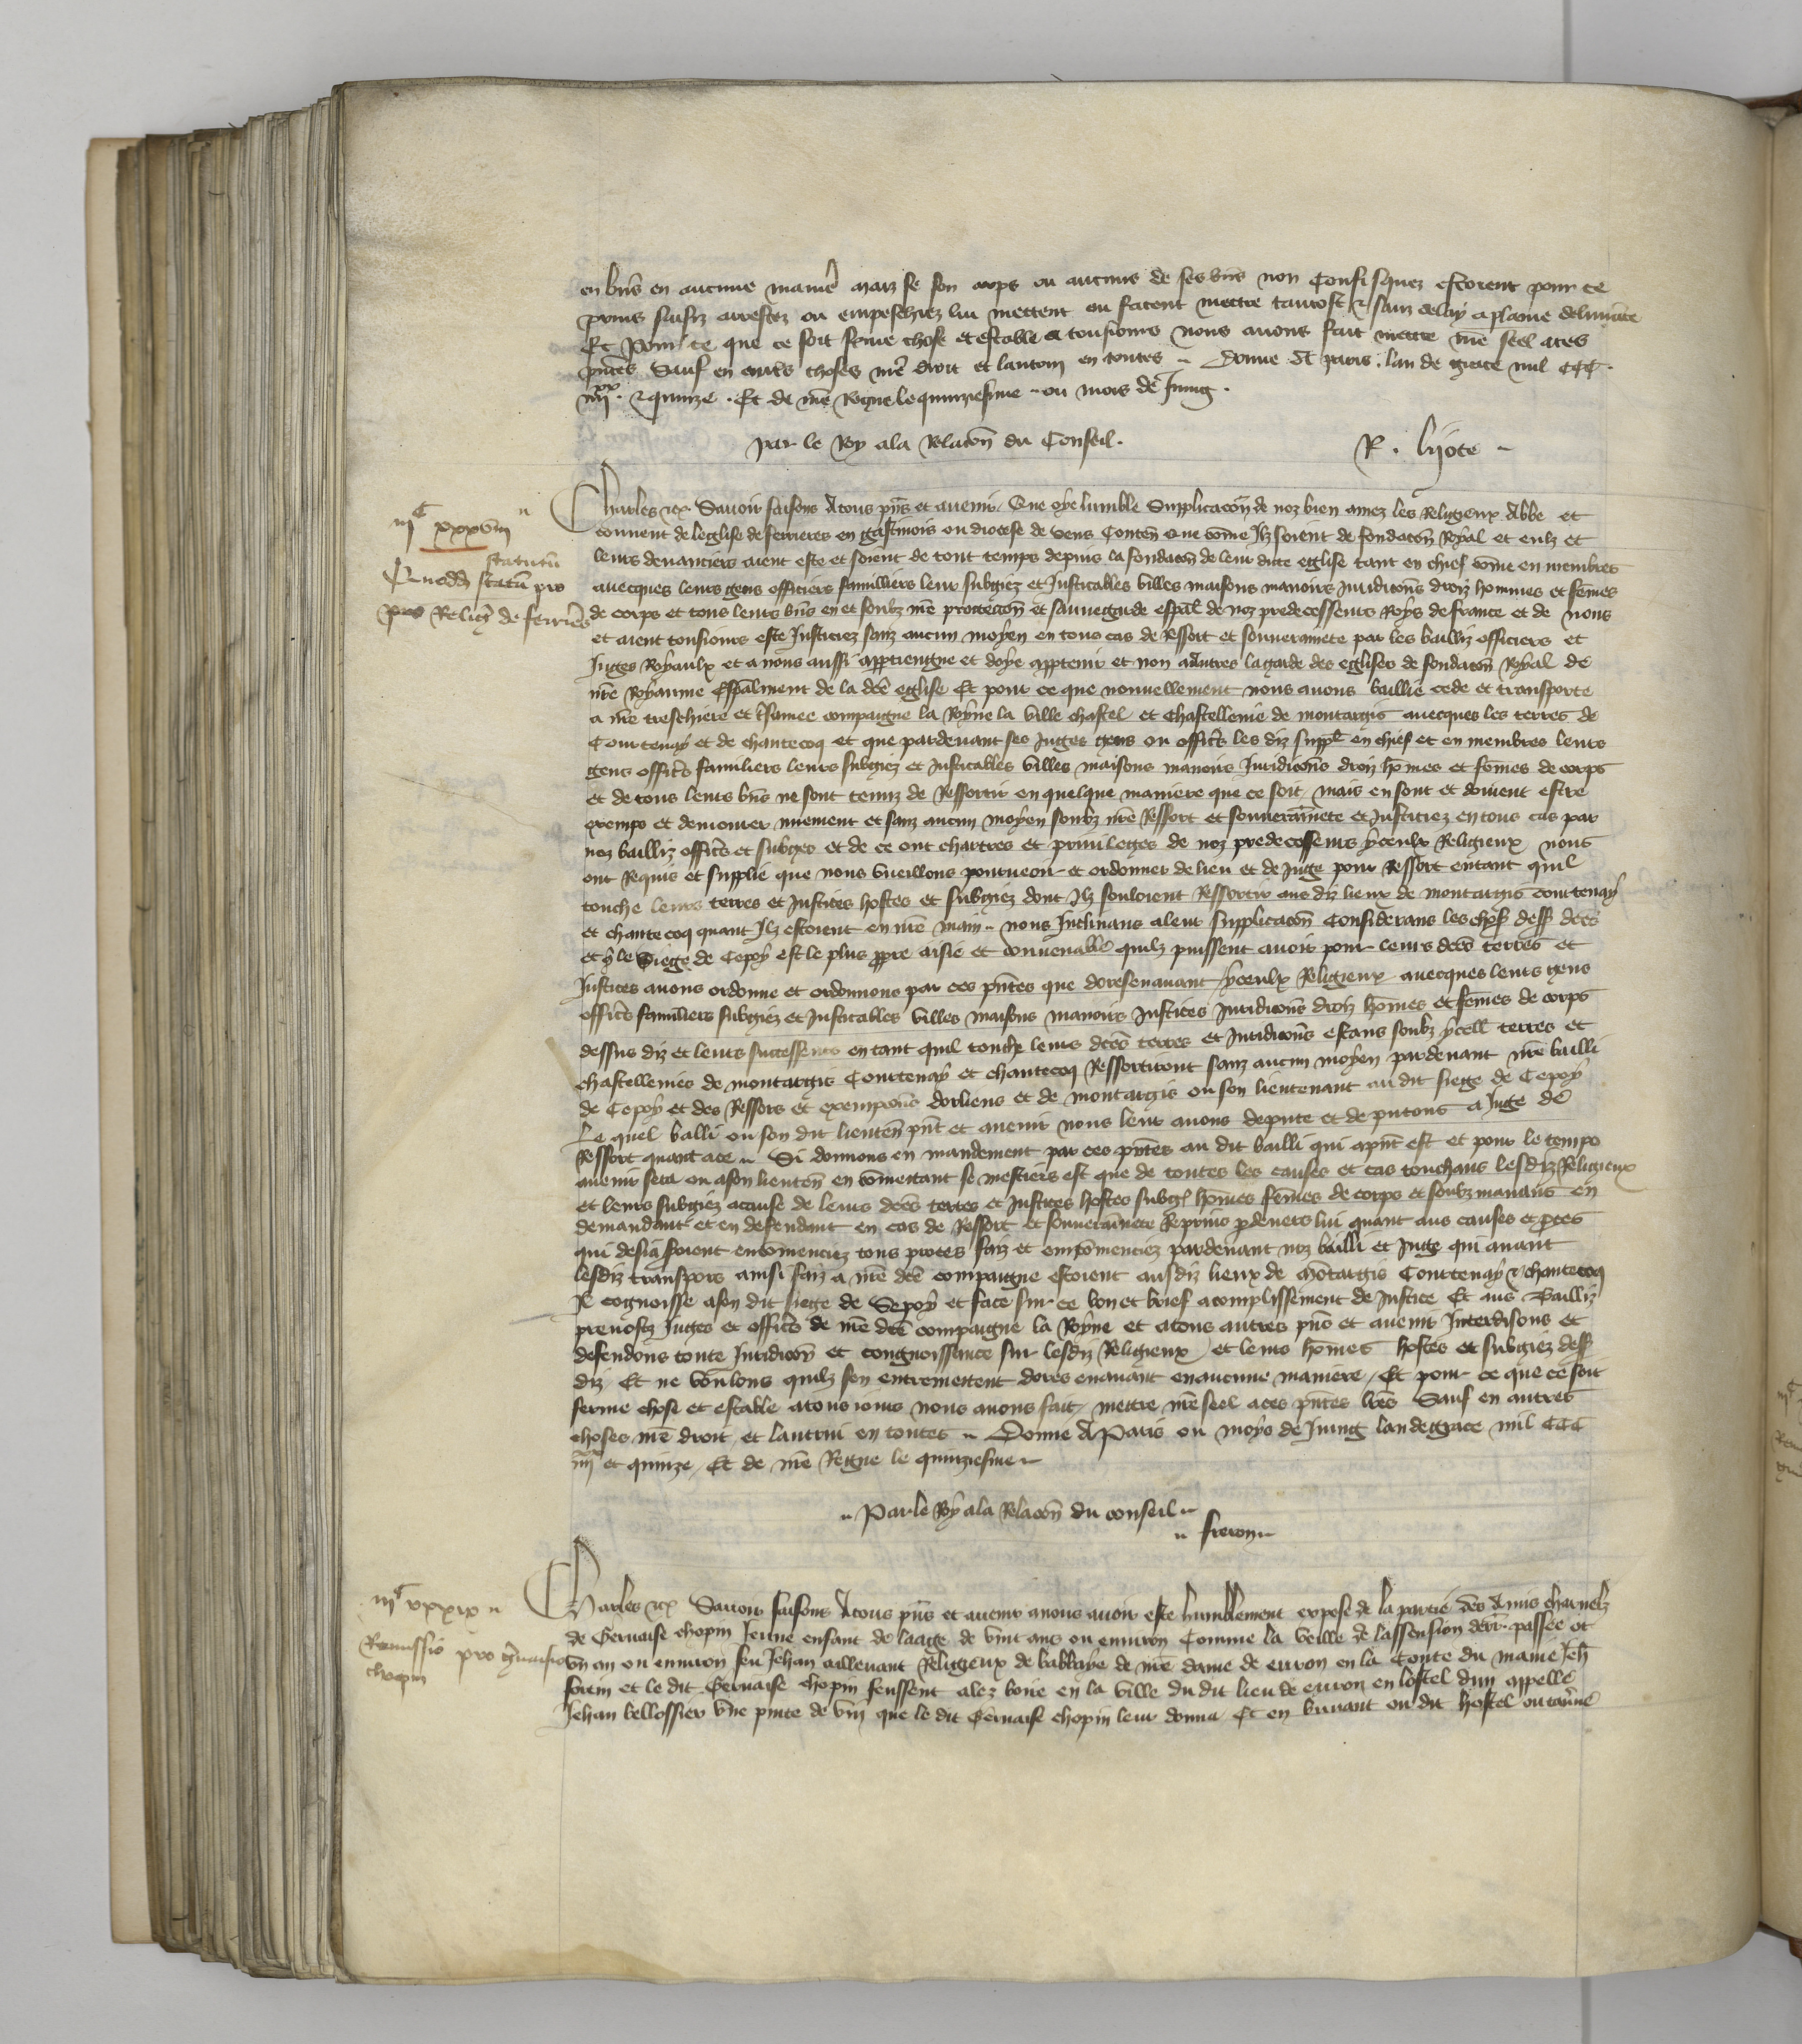 en biens en aucune maniere mais se son corps ou aucuns de ses biens non Confisquez estoient pour ce
prins saisiz arrestez ou empeschiez lui mettent ou facent mettre tantost & sanz delay a plaine delivrance
Et Pour ce que ce soit ferme chose et estable a tousiours nous avons fait mettre nre seel a ces
pntes Sauf en autres choses nre droit et lautruy en toutes Donne A paris lan de grace mil CCC
iiijxx & quinze Et de nre Regne le quinziesme ou mois de Juing
par le Roy a la Relacon du Conseil
R. lijote
iijC xxxviij
Quoddam statutum pro
Relig de ferrieres
Charles &c Savoir faisons A tous pns et avenir Que oye lumble Supplicacon de noz bien amez les Religieux Abbe et
convent de leglise de ferrieres en gastinois ou diocese de Sens Conten Que come Ilz soient de fondacon Royal et eulz et
leurs devanciers aient este et soient de tout temps depuis la fondacon de leur dicte eglise tant en chief come en membres
avecques leurs gens officiers familliers leur subgiez et Justicables villes maisons manoirs Juridicons droiz hommes et femes
de corps et tous leurs biens en et soubz nre proteccon et sauvegarde espal de noz predecesseurs Roys de france et de nous
et aient tousiours este Justiciez sanz aucun moyen en tous cas de Ressort et souverainete par les bailliz officiers et
Juges Royaulx et a nous aussi appartiengne et doye appartenir et non a autres la garde des eglises de fondacon Royal de
nre Royaume Espalment de la dce eglise Et pour ce que nouvellement nous avons baillie cede et transporte
a nre treschiere et tsamee compaigne la Royne la ville chastel et Chastellenie de montargis avecques les terres de
Courtenay et de chantecoq et que pardevant ses Juges gens ou officrs les diz suppl en chief et en membres leurs
gens officrs familiers leurs subgiez et Justicables villes maisons manoirs Juridicons droiz homes et femes de corps
et de tous leurs biens ne sont tenuz de Ressortir en quelque maniere que ce soit mais en sont et doivent estre
exemps et demourer nuement et sanz aucun moyen soubz nre Ressort et souverainete et Justiciez en tous cas par
noz bailliz officrs et subgez et de ce ont chartres et privileges de noz predecesseurs yceulx Religieux nous
ont Requis et supplie que nous vueillons pourveoir et ordonner de lieu et de Juge pour Ressort en tant quil
touche leurs terres et Justices hostes et subgiez dont Ilz souloient Ressortir aus diz lieux de montargis courtenay
et chantecoq quant Ilz estoient en nre main nous Inclinans a leur supplicacon Considerans les choses dess dces
et q le Siege de Cepoy est le plus ppre aisie et convenable quilz puissent avoir pour leurs dces terres et
Justices avons ordonne et ordonnons par ces pntes que doresenavant yceulx Religieux avecques leurs gens
officrs familiers subgiez et Justicables villes maisons manoirs Justices Juridicons droiz homes et femes de corps
dessus diz et leurs successeurs en tant quil touche leurs dces terres et Juridicons estans soubz ycell terres et
chastellenies de montargis Courtenay et chantecoq Ressortiront sanz aucun moyen pardevant nre bailli
de Cepoy et des Ressors et exempcons dorliens et de montargis ou son lieutenant au dit siege de Cepoy
Le quel balli ou son dit lieuten pnt et avenir nous leur avons depute et deputons a Juge de
Ressort quant a ce Si donnons en mandement par ces pntes au dit bailli qui apnt est et pour le temps
avenir sera ou a son lieuten en comettant se mestiers est que de toutes les causes et cas touchans lesdiz Religieux
et leurs subgiez a cause de leurs dces terres et Justices hostes subgez homes femes de corps et soubzmanans en
demandant et en defendant en cas de Ressort et souverainete Reprins pdevers lui quant aus causes et proces
qui desia soient encomenciez tous proces faiz et encomenciez pardevant noz bailli et Juge qui avant
lesdiz transpors ainsi faiz a nre dce compaigne estoient ausdiz lieux de motargis Courtenay & chantecoq
Il cognoisse a son dit siege de Sepoy et face sur ce bon et brief acomplissement de Justice Et aus Bailliz
prevostz Juges et officrs de nre dce compaigne la Royne et a tous autres pns et avenir Interdisons et
defendons toute Juridicon et congnoissance sur lesdiz Religieux et leurs homes hostes et subgiez dess
diz Et ne voulons quilz sen entremettent dores enavant en aucune maniere Et pour ce que ce soit
ferme chose et estable a tous iours nous avons fait mettre nre seel a ces pntes lres Sauf en autres
choses nre droit et lautrui en toutes Donne A Paris ou moys de Juing lan de grace mil CCC
iiijxx et quinze Et de nre Regne le quinziesme
Par le Roy a la Relacon du conseil
freron
iijC xxxix
Remissio pro Gervasio
chopin
Charles &c Savoir faisons A tous pns et avenir a nous avoir este humblement expose de la partie des Amis charnelz
de Gervaise chopin Jeune enfant de laage de vint ans ou environ Comme la veille de lassension derr passee ot
un an ou environ feu Jehan aillevant Religieux de labbaye de nre dame de euron en la Conte du maine Jeh
et le dit Gervaise chopin feussent alez boire en la ville du dit lieu de euron en lostel dun appelle
Jehan bellossier une pinte de vin que le dit Gervaise chopin leur donna Et en buvant ou dit hostel ou taverne